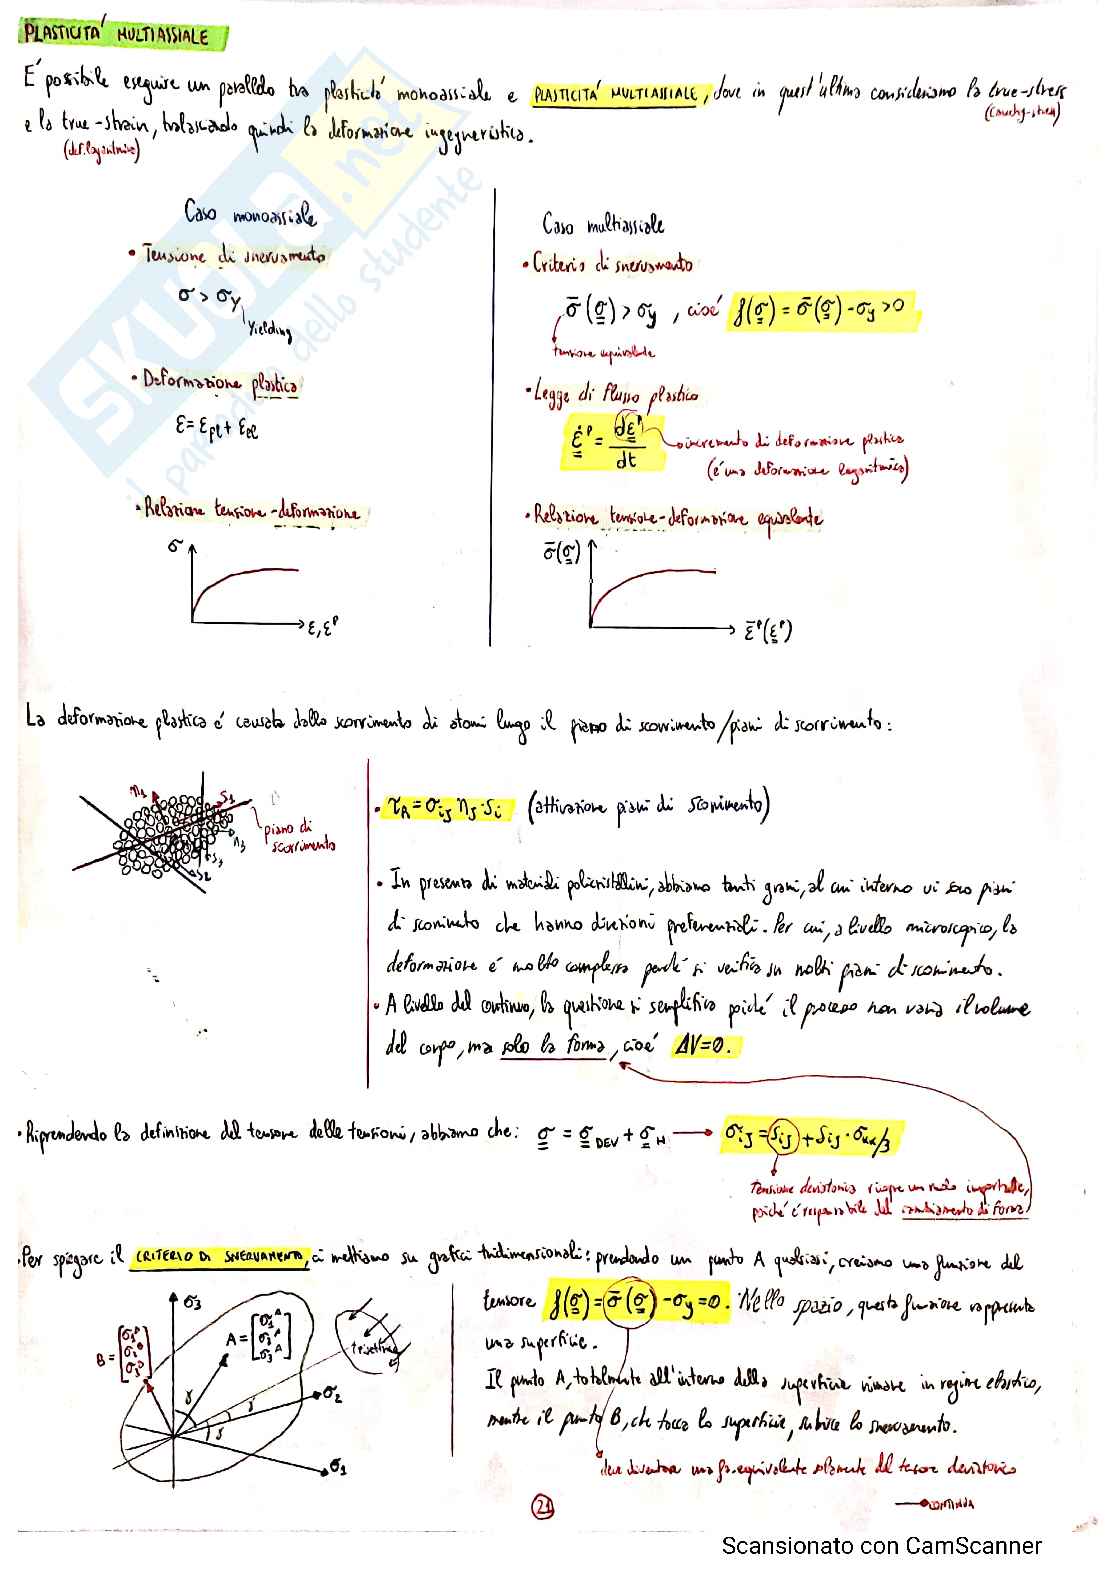 PLASTICITÁ MULTIASSIALE
É possibile eseguire un parallelo tra plasticitá monoassiale e PLASTICITÁ MULTIASSIALE, dove in quest'ultima consideriamo la true-stress
(Cauchy-stress)
e la true-strain, tralasciando quindi la deformazione ingegneristica.
(def. logaritmica)
SKUOLA.net
il paradiso dello studente
Caso monoassiale
• Tensione di snervamento
σ > σy
Yielding
• Deformazione plastica
ε = εpl + εel
• Relazione tensione-deformazione
σ
ε, εᵖ
Caso multiassiale
• Criterio di snervamento
σ̄(σ) > σy , cioé f(σ) = σ̄(σ) - σy > 0
tensione equivalente
• Legge di flusso plastico
ε̇ᵖ = dεᵖ/dt
incremento di deformazione plastica
(é una deformazione logaritmica)
• Relazione tensione-deformazione equivalente
σ̄(σ)
ε̄ᵖ(εᵖ)
La deformazione plastica é causata dallo scorrimento di atomi lungo il piano di scorrimento/piani di scorrimento:
n1
s1
n3
s3
s2
piano di
scorrimento
• τA = σij nj · si (attivazione piani di scorrimento)
• In presenza di materiali policristallini, abbiamo tanti grani, al cui interno vi sono piani
di scorrimento che hanno direzioni preferenziali. Per cui, a livello microscopico, la
deformazione é molto complessa perché si verifica su molti piani di scorrimento.
• A livello del continuo, la questione si semplifica poiché il processo non varia il volume
del corpo, ma solo la forma, cioé ΔV=0.
• Riprendendo la definizione del tensore delle tensioni, abbiamo che: σ = σ DEV + σ H → σij = sij + δij · σkk/3
tensione deviatorica ricopre un ruolo importante,
poiché é responsabile del cambiamento di forma
• Per spiegare il CRITERIO DI SNERVAMENTO, ci mettiamo su grafici tridimensionali: prendendo un punto A qualsiasi, creiamo una funzione del
tensore f(σ) = σ̄(σ) - σy = 0. Nello spazio, questa funzione rappresenta
una superficie.
Il punto A, totalmente all'interno della superficie rimane in regime elastico,
mentre il punto B, che tocca la superficie, subisce lo snervamento.
deve diventare una equivalente solamente del tensore deviatorico
σ3
A = [σ1ᴬ σ2ᴬ σ3ᴬ]
B = [σ1ᴮ σ2ᴮ σ3ᴮ]
trisettrice
σ2
γ
γ
γ
σ1
21
CONTINUA
Scansionato con CamScanner